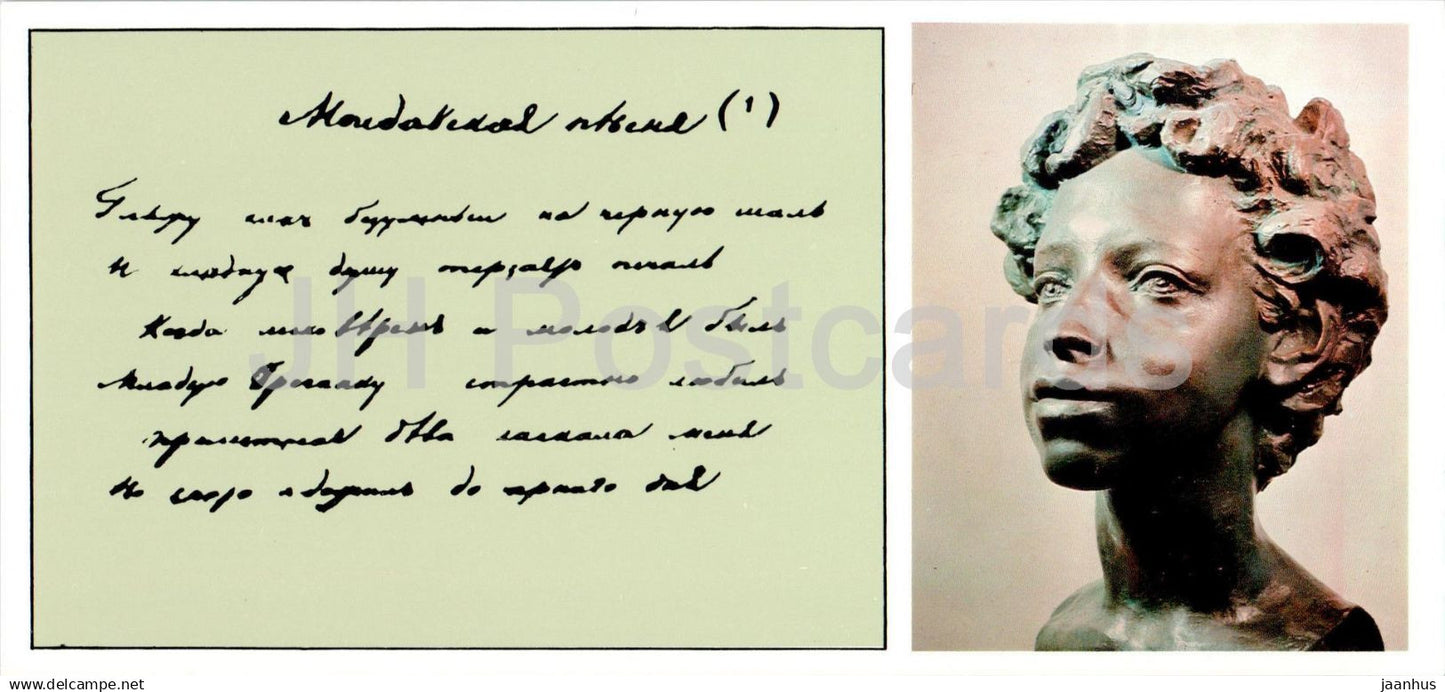 Молдавская пѣсня (1)
Гляжу какъ безумный на черную шаль
И хладную душу терзаетъ печаль
Когда легковѣренъ и молодъ я былъ
Младую Гречанку страстно любилъ
Прелестная дѣва ласкала меня
Но скоро я дожилъ до чернаго дня
JH Postcards
www.delcampe.net
jaanhus